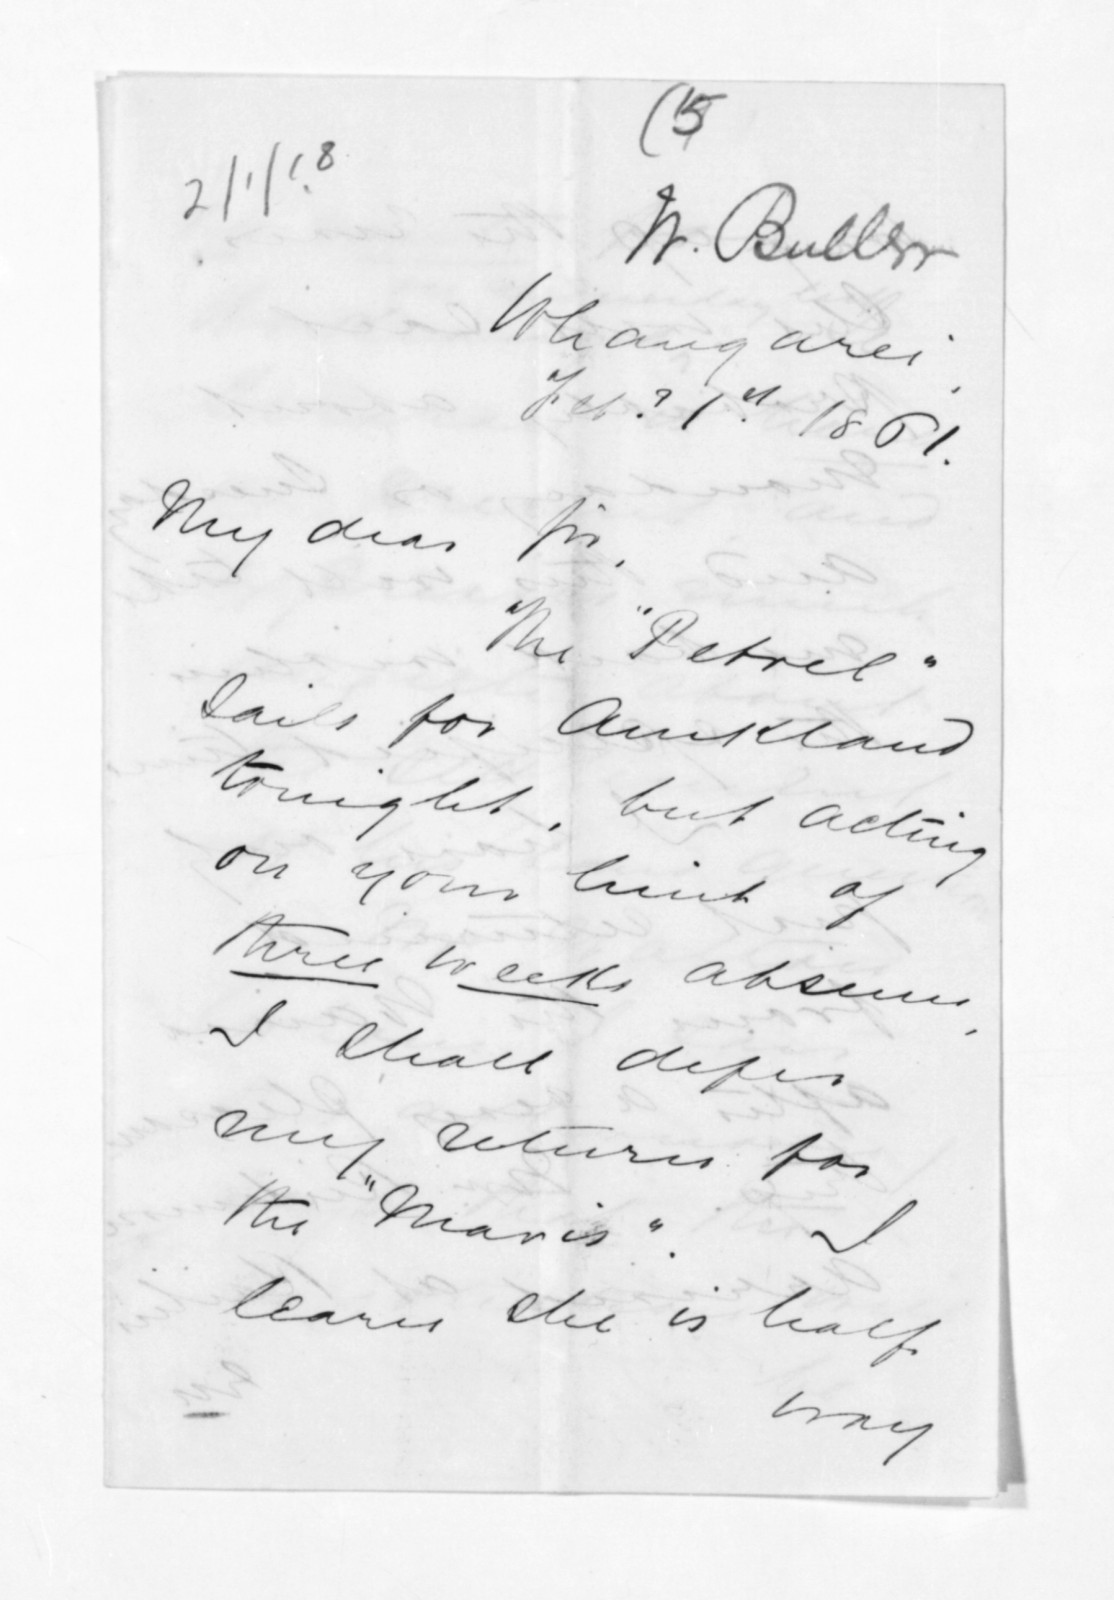 (5
W. Buller
Whangarei,
Feb. 21st. 1861.
My dear Sir,
The "Petrel"
sails for Auckland
tonight, but acting
on your hint of
three weeks absence,
I shall defer
my return for
the "Mavis". I
learn she is half
way